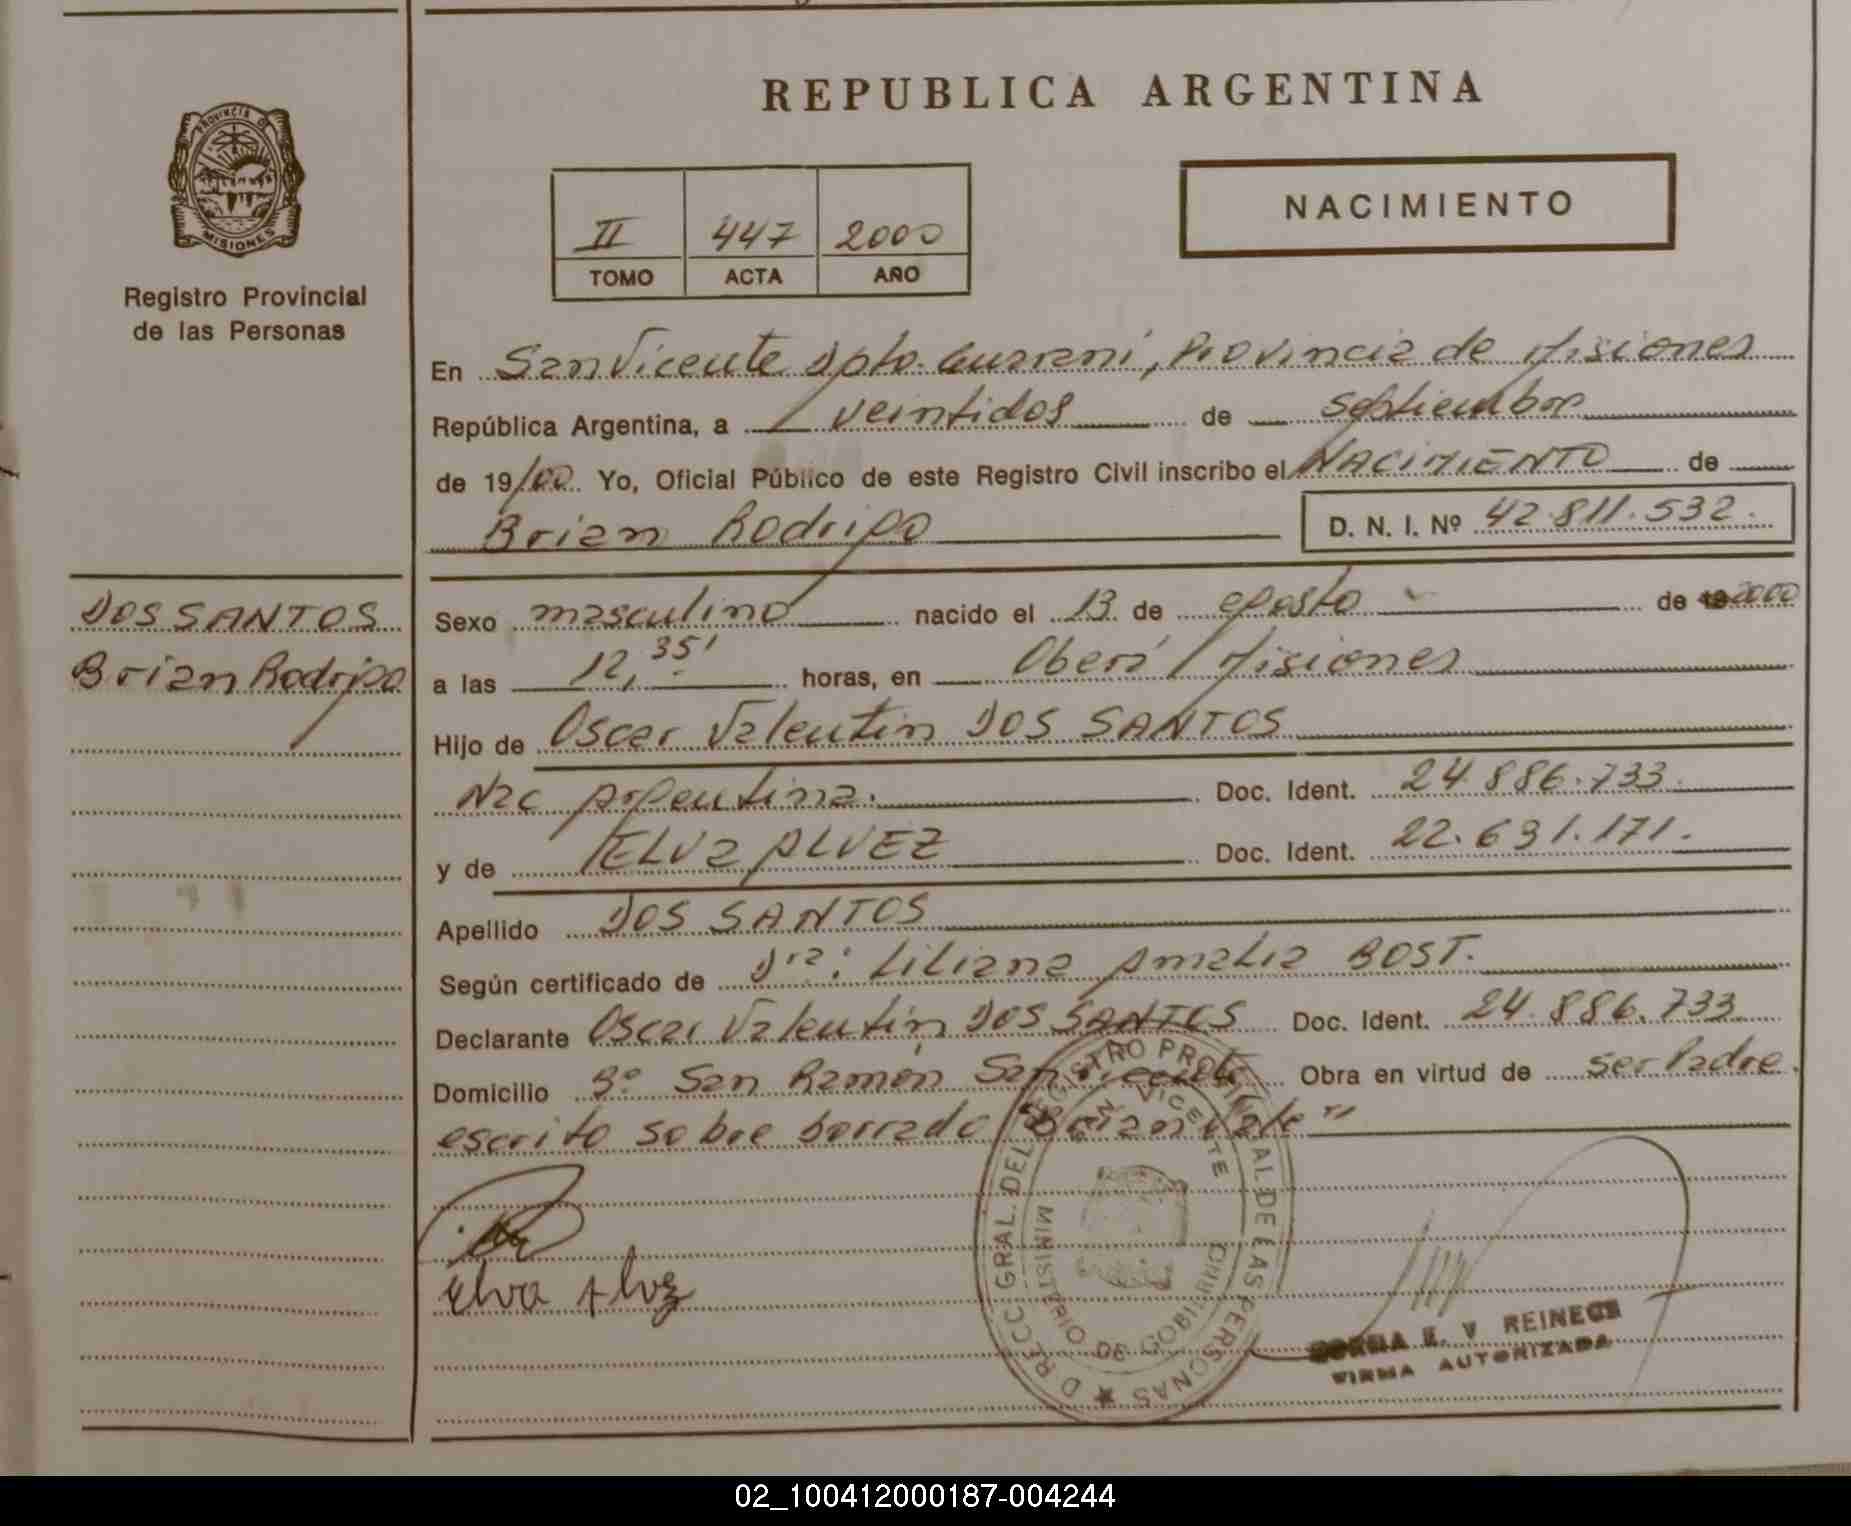 REPUBLICA ARGENTINA
PROVINCIA DE
MISIONES
Registro Provincial
de las Personas
II 447 2000
TOMO ACTA AÑO
NACIMIENTO
En San Vicente Dpto. Guaraní, Provincia de Misiones
República Argentina, a veintidos de septiembre
de 19/00. Yo, Oficial Público de este Registro Civil inscribo el NACIMIENTO de
Brian Rodrigo D. N. I. Nº 42.811.532.
DOS SANTOS
Brian Rodrigo
Sexo masculino nacido el 13 de agosto de 19 2000
a las 12,35' horas, en Oberá Misiones
Hijo de Oscar Valentin DOS SANTOS
Nac Argentina. Doc. Ident. 24.886.733.
y de ELVA ALVEZ Doc. Ident. 22.631.171.
Apellido DOS SANTOS
Según certificado de Dra: Liliana Amalia BOST.
Declarante Oscar Valentin DOS SANTOS Doc. Ident. 24.886.733.
Domicilio Bº San Ramón San Vicente Obra en virtud de ser Padre.
escrito sobre borrado "Brian Vale"
Elva Alvez
DIRECC. GRAL. DEL REGISTRO PROVINCIAL DE LAS PERSONAS
SAN VICENTE
MINISTERIO DE GOBIERNO
E. V REINECK
FIRMA AUTORIZADA
02_100412000187-004244